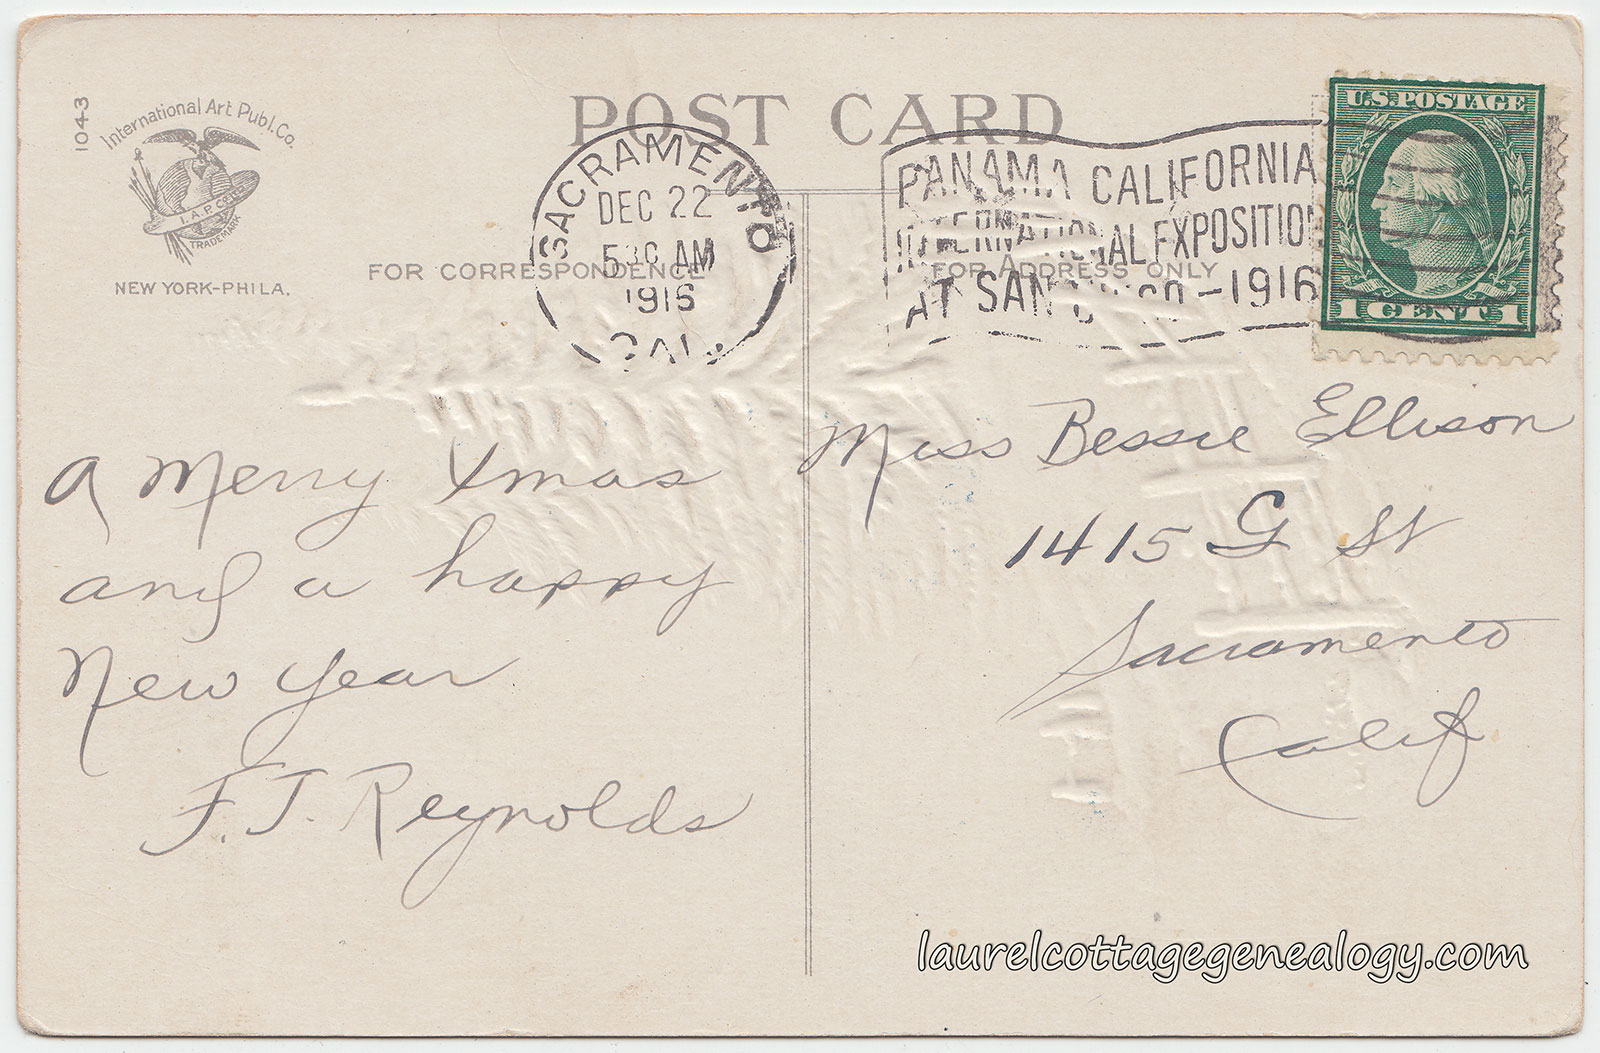 1043
International Art Publ. Co.
I. A. P. Co.
TRADEMARK
NEW YORK-PHILA.
POST CARD
SACRAMENTO
DEC 22
5 30 AM
1916
CAL.
PANAMA CALIFORNIA
INTERNATIONAL EXPOSITION
AT SAN -1916
U.S. POSTAGE
1 CENT 1
FOR CORRESPONDENCE
FOR ADDRESS ONLY
A Merry Xmas
and a happy
New Year
F. J. Reynolds
Miss Bessie Ellison
1415 G St
Sacramento
Calif
laurelcottagegenealogy.com